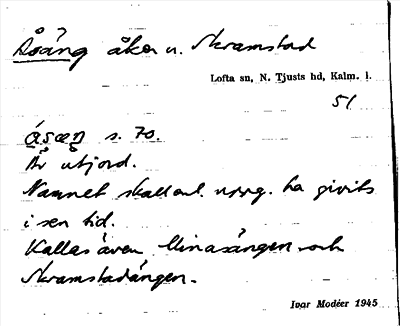 Åsäng åker u. Skramstad
Lofta sn, N. Tjusts hd, Kalm. l.
51
s. 70.
Är utjord.
Namnet skall enl. uppg. ha givits
i sen tid.
Kallas även Minasängen och
Skramstadängen.
Ivar Modéer 1945